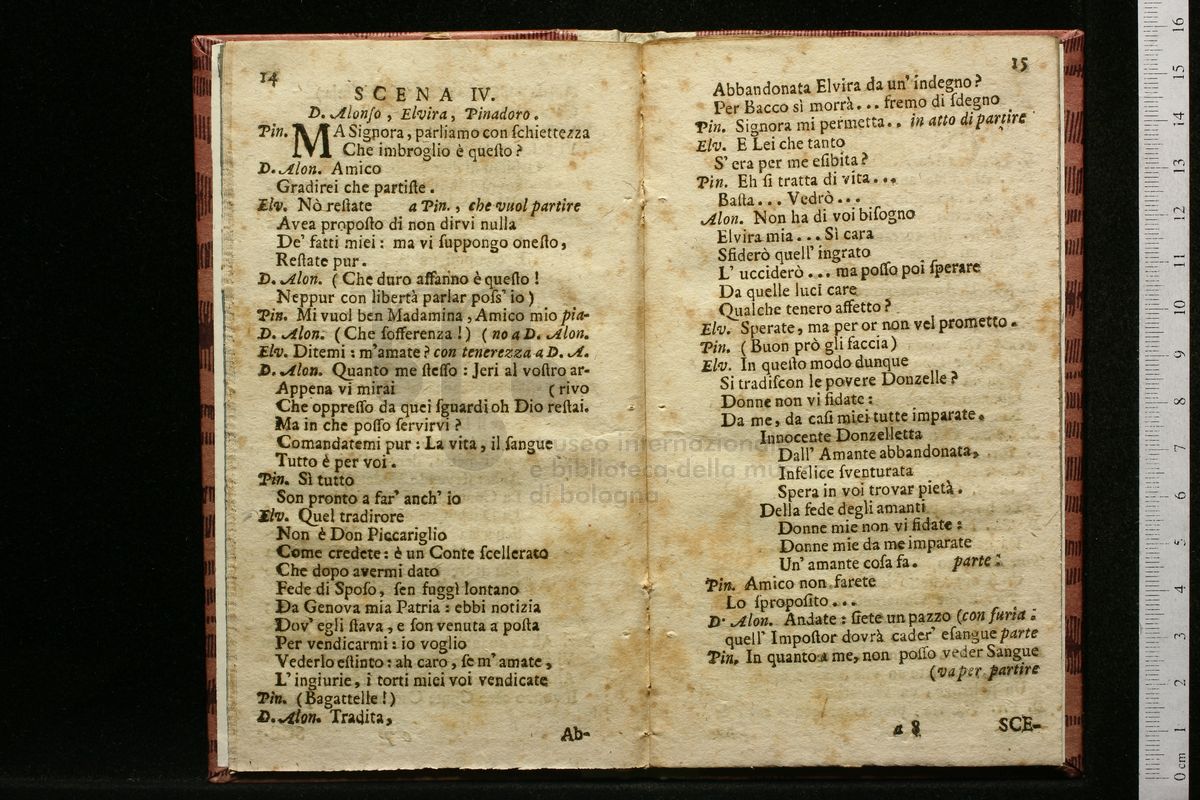 14
SCENA IV.
D. Alonſo, Elvira, Pinadoro.
Pin. MA Signora, parliamo con ſchiettezza
Che imbroglio è queſto?
D. Alon. Amico
Gradirei che partiſte.
Elv. Nò reſtate a Pin., che vuol partire
Avea propoſto di non dirvi nulla
De' fatti miei: ma vi ſuppongo oneſto,
Reſtate pur.
D. Alon. (Che duro affanno è queſto!
Neppur con libertà parlar poſs' io)
Pin. Mi vuol ben Madamina, Amico mio pia-
D. Alon. (Che ſofferenza!) (no a D. Alon.
Elv. Ditemi: m'amate? con tenerezza a D. A.
D. Alon. Quanto me ſteſſo: Jeri al voſtro ar-
Appena vi mirai (rivo
Che oppreſſo da quei ſguardi oh Dio reſtai.
Ma in che poſſo ſervirvi?
Comandatemi pur: La vita, il ſangue
Tutto è per voi.
Pin. Sì tutto
Son pronto a far' anch' io
Elv. Quel tradirore
Non è Don Piccariglio
Come credete: è un Conte ſcellerato
Che dopo avermi dato
Fede di Spoſo, ſen fuggì lontano
Da Genova mia Patria: ebbi notizia
Dov' egli ſtava, e ſon venuta a poſta
Per vendicarmi: io voglio
Vederlo eſtinto: ah caro, ſe m' amate,
L' ingiurie, i torti miei voi vendicate
Pin. (Bagattelle!)
D. Alon. Tradita,
Ab-
15
Abbandonata Elvira da un' indegno?
Per Bacco sì morrà... fremo di ſdegno
Pin. Signora mi permetta.. in atto di partire
Elv. E Lei che tanto
S' era per me eſibita?
Pin. Eh ſi tratta di vita...
Baſta... Vedrò...
Alon. Non ha di voi biſogno
Elvira mia... Sì cara
Sfiderò quell' ingrato
L' ucciderò... ma poſſo poi ſperare
Da quelle luci care
Qualche tenero affetto?
Elv. Sperate, ma per or non vel prometto.
Pin. (Buon prò gli faccia)
Elv. In queſto modo dunque
Si tradiſcon le povere Donzelle?
Donne non vi fidate:
Da me, da caſi miei tutte imparate.
Innocente Donzelletta
Dall' Amante abbandonata,
Infelice ſventurata
Spera in voi trovar pietà.
Della fede degli amanti
Donne mie non vi fidate:
Donne mie da me imparate
Un' amante coſa fa. parte.
Pin. Amico non farete
Lo ſpropoſito...
D. Alon. Andate: ſiete un pazzo (con furia.
quell' Impoſtor dovrà cader' eſangue parte
Pin. In quanto a me, non poſſo veder Sangue
(va per partire
a 8 SCE-
museo internazionale
e biblioteca della mu
di bologna
0 cm 1 2 3 4 5 6 7 8 9 10 11 12 13 14 15 16